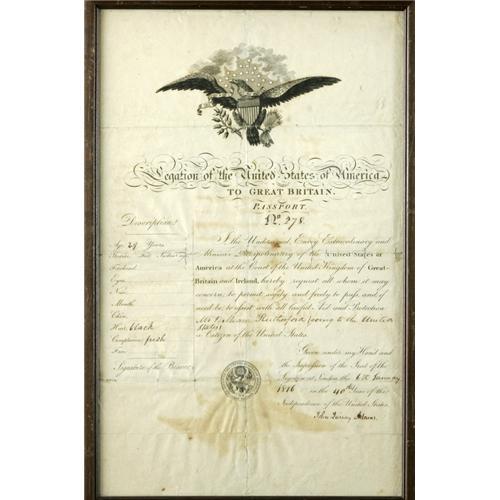 Legation of the United States of America
TO GREAT BRITAIN.
PASSPORT.
No. 278.
Description
Age 29 Years
Stature Feet Inches
Forehead
Eyes
Nose
Mouth
Chin
Hair black
Complexion fresh
Face
Signature of the Bearer
I the Undersigned, Envoy Extraordinary and
Minister Plenipotentiary of the United States of
America at the Court of the United Kingdom of Great-
Britain and Ireland, hereby request all whom it may
concern, to permit safely and freely to pass, and if
need be, to assist with all lawful Aid and Protection
Rutherford going to the United
States
a Citizen of the United States.
Given under my Hand and
the Impression of the Seal of the
Legation at London the 6th January
1816 in the 40th Year of the
Independence of the United States.
John Quincy Adams.